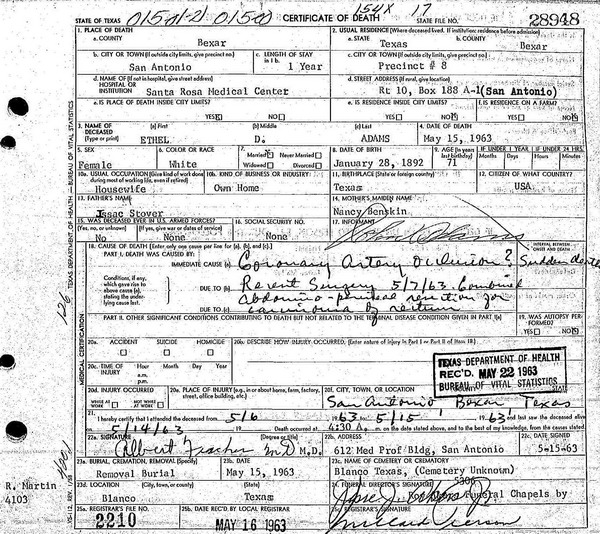 154X 17
STATE OF TEXAS 01501-21 01500 CERTIFICATE OF DEATH STATE FILE NO. 28948
1. PLACE OF DEATH
a. COUNTY
Bexar
2. USUAL RESIDENCE (Where deceased lived. If institution: residence before admission)
a. STATE b. COUNTY
Texas Bexar
b. CITY OR TOWN (If outside city limits, give precinct no.)
San Antonio
c. LENGTH OF STAY in 1 b.
1 Year
c. CITY OR TOWN (If outside city limits, give precinct no.)
Precinct # 8
d. NAME OF (If not in hospital, give street address) HOSPITAL OR INSTITUTION
Santa Rosa Medical Center
d. STREET ADDRESS (If rural, give location)
Rt 10, Box 188 A-1(San Antonio)
e. IS PLACE OF DEATH INSIDE CITY LIMITS?
YES NO
e. IS RESIDENCE INSIDE CITY LIMITS?
YES NO
f. IS RESIDENCE ON A FARM?
YES NO
3. NAME OF DECEASED (Type or print)
(a) First (b) Middle (c) Last
ETHEL D. ADAMS
4. DATE OF DEATH
May 15, 1963
5. SEX
Female
6. COLOR OR RACE
White
7. Married Never Married
Widowed Divorced
8. DATE OF BIRTH
January 28, 1892
9. AGE (In years last birthday)
71
IF UNDER 1 YEAR
Months Days
IF UNDER 24 HRS.
Hours Min.
10a. USUAL OCCUPATION (Give kind of work done during most of working life, even if retired)
Housewife
10b. KIND OF BUSINESS OR INDUSTRY
Own Home
11. BIRTHPLACE (State or foreign country)
Texas
12. CITIZEN OF WHAT COUNTRY?
USA
13. FATHER'S NAME
Issac Stover
14. MOTHER'S MAIDEN NAME
Nancy Benskin
15. WAS DECEASED EVER IN U.S. ARMED FORCES?
(Yes, no, or unknown) (If yes, give war or dates of service)
No None
16. SOCIAL SECURITY NO.
None
17. INFORMANT
18. CAUSE OF DEATH [Enter only one cause per line for (a), (b), and (c).]
PART I. DEATH WAS CAUSED BY:
IMMEDIATE CAUSE (a) Coronary artery occlusion?
INTERVAL BETWEEN ONSET AND DEATH
Sudden death
Conditions, if any, which gave rise to above cause (a), stating the underlying cause last.
DUE TO (b) Recent Surgery 5/7/63. Combined
abdomino-perineal resection for
DUE TO (c) carcinoma of rectum
PART II. OTHER SIGNIFICANT CONDITIONS CONTRIBUTING TO DEATH BUT NOT RELATED TO THE TERMINAL DISEASE CONDITION GIVEN IN PART I(a)
19. WAS AUTOPSY PERFORMED?
YES NO
20a. ACCIDENT SUICIDE HOMICIDE
20b. DESCRIBE HOW INJURY OCCURRED. (Enter nature of injury in Part I or Part II of item 18.)
20c. TIME OF INJURY
Hour Month Day Year
a.m.
p.m.
TEXAS DEPARTMENT OF HEALTH
REC'D. MAY 22 1963
BUREAU OF VITAL STATISTICS
20d. INJURY OCCURRED
WHILE AT WORK NOT WHILE AT WORK
20e. PLACE OF INJURY (e.g., in or about home, farm, factory, street, office building, etc.)
20f. CITY, TOWN, OR LOCATION COUNTY STATE
San Antonio Bexar Texas
21. I hereby certify that I attended the deceased from 5/6 1963 to 5/15 1963 and last saw the deceased alive
on 5/14/63 19 Death occurred at 4:30 A. m. on the date stated above, and to the best of my knowledge, from the causes stated.
22a. SIGNATURE (Degree or title)
Albert Fischer MD M.D.
22b. ADDRESS
612 Med Prof Bldg, San Antonio
22c. DATE SIGNED
5-15-63
23a. BURIAL, CREMATION, REMOVAL (Specify)
Removal Burial
23b. DATE
May 15, 1963
23c. NAME OF CEMETERY OR CREMATORY
Blanco Texas, (Cemetery Unknown)
23d. LOCATION (City, town, or county) (State)
Blanco Texas
24. FUNERAL DIRECTOR'S SIGNATURE
5306
Funeral Chapels by
25a. REGISTRAR'S FILE NO.
2210
25b. DATE REC'D BY LOCAL REGISTRAR
MAY 16 1963
25c. REGISTRAR'S SIGNATURE
R. Martin
4103
TEXAS DEPARTMENT OF HEALTH — BUREAU OF VITAL STATISTICS
MEDICAL CERTIFICATION
126